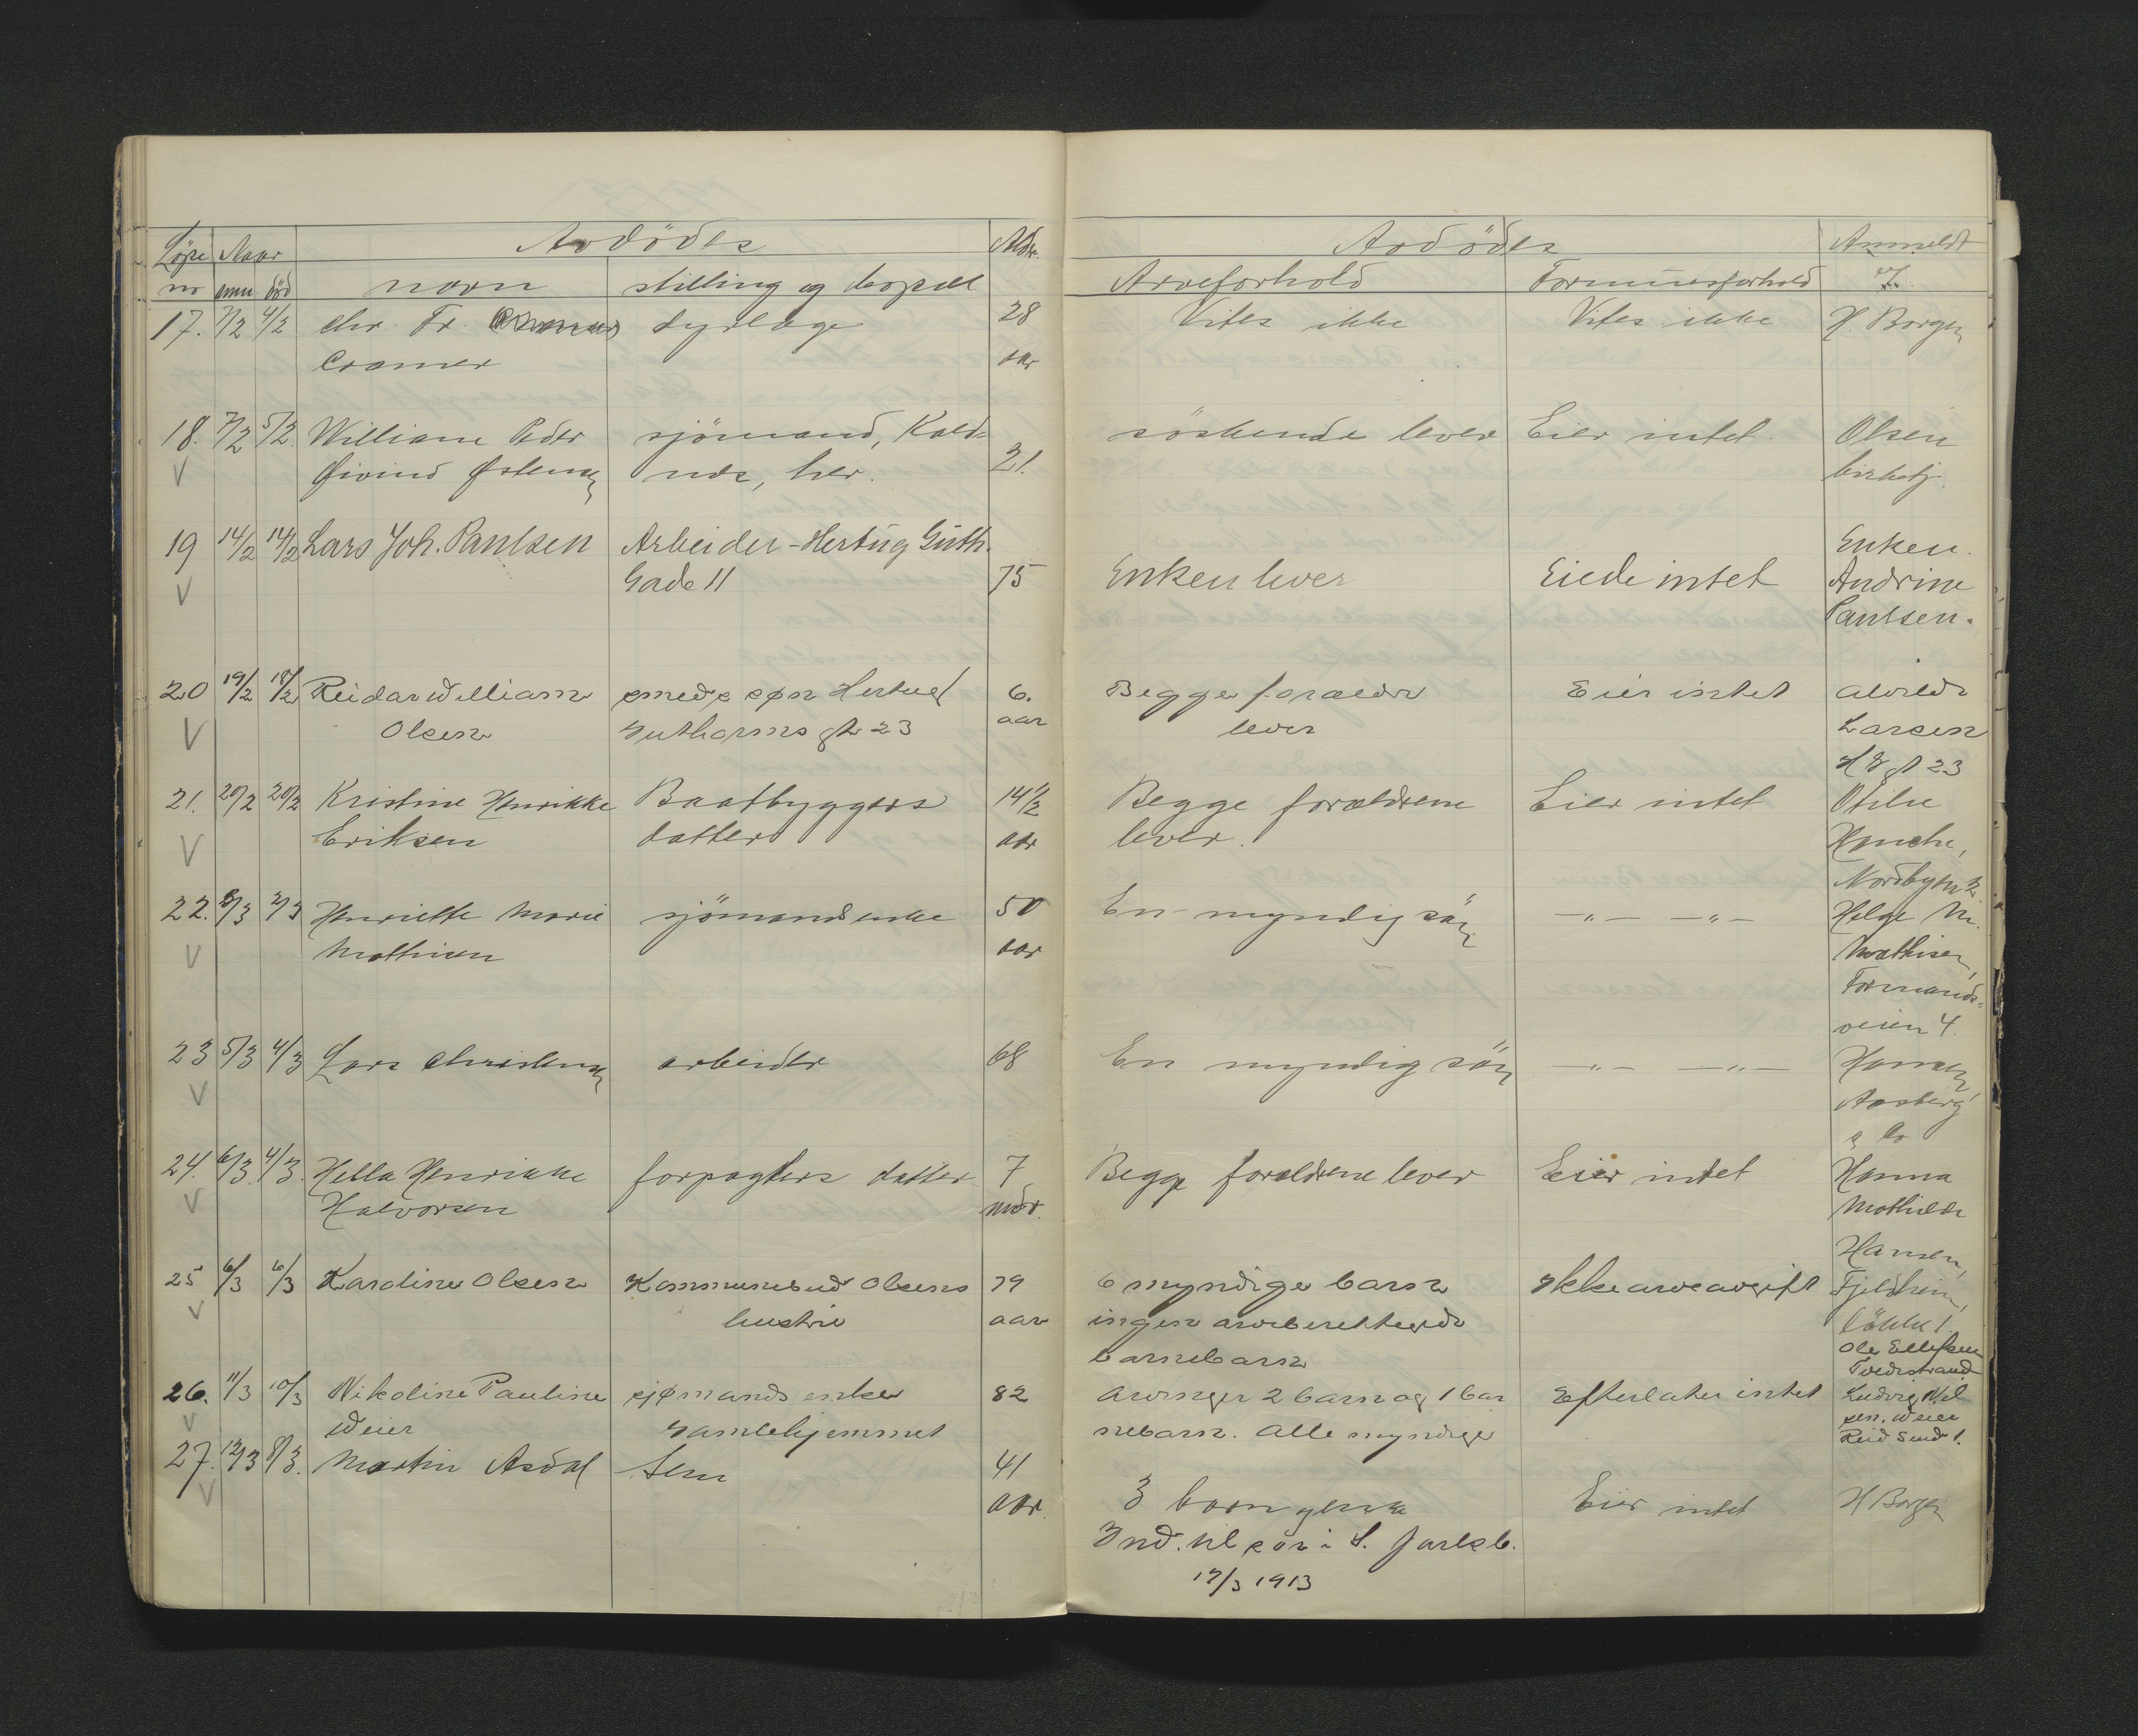 Løpe Naar Avdödes Alder
no anm död navn stilling og bopæl
17. 7/2 4/2 Chr. Fr. dyrlæge 28
Cramer aar
18. 7/2 5/2 William Peder sjömand, Kald-
V Øivind Østensen næs, her. 21.
19 14/2 14/2 Lars Joh. Paulsen Arbeider - Hertug Guth.
V Gade 11 75
20 19/2 18/2 Reidar William smeds søn Hertug 6.
V Olsen Guthorms gt 23 aar
21. 20/2 20/2 Kristine Henrikke Baatbyggers 14 1/2
V Eriksen datter aar
22. 3/3 2/3 Henriette Marie sjömandsenke 50
V Mathisen aar
23 5/3 4/3 Lars Christensen arbeider 68
V
24. 6/3 4/3. Hella Henrikke forpagters datter 7
V Halvorsen mdr.
25 6/3 6/3 Karoline Olsen Kommunebud Olsens 79
V hustru aar
26. 11/3 10/3 Nikoline Pauline sjømands enke 82
V Weier Gamlehjemmet
27. 12/3 8/3. Martin Asdal Sem 41
V aar.
Avdödes Anmeldt
Arveforhold Formuesforhold af
Vites ikke Vites ikke H. Borgen
söskende lever Eier intet. Olsen
birketj.
Enken
Enken lever Eiede intet Andrine
Paulsen.
Begge forældre Eier intet Alvilde
lever Larsen
H G gt 23
Begge forældrene Eier intet Otilie
lever. Hanche,
Nordbyen 2.
En myndig sön —"— —"— Helge M.
Mathisen,
Formands-
veien 4.
En myndig sön —"— —"— Hansen,
Aasberg
& Co
Begge forældrene lever Eier intet Hanna
Mathilde
Hansen,
6 myndige barn Ikke arveavgift Fjeldheim,
ingen arveberettigede
barnebarn Ole Ellefsen
Tvedestrand
Arvinger 2 barn og 1 bar Efterlater intet Ludvig Niel
nebarn. Alle myndige sen. Weier
3 barn Eier intet H Borgen
Ind. til sor. i S. Jarlsb.
17/3 1913